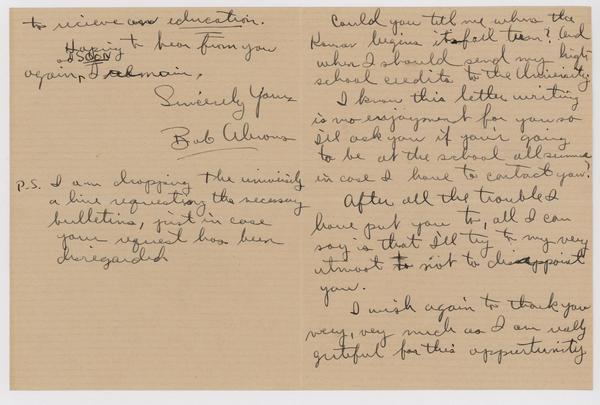 Could you tell me when the
Konar begins its fall term? And
when I should send my high
school credits to the University
I know this letter writing
is no enjoyment for you so
I'll ask you if you're going
to be at the school all summer
in case I have to contact you?
After all the trouble I
have put you to, all I can
say is that I'll try to my very
utmost to not to disappoint
you.
I wish again to thank you
very, very much as I am really
grateful for this oppurtunity
to recieve an education.
Hoping to hear from you
as SOON
again, I remain,
Sincerely Yours
Bob Abrons
P.S. I am dropping the university
a line requesting the necessary
bulletins, just in case
your request has been
disregarded